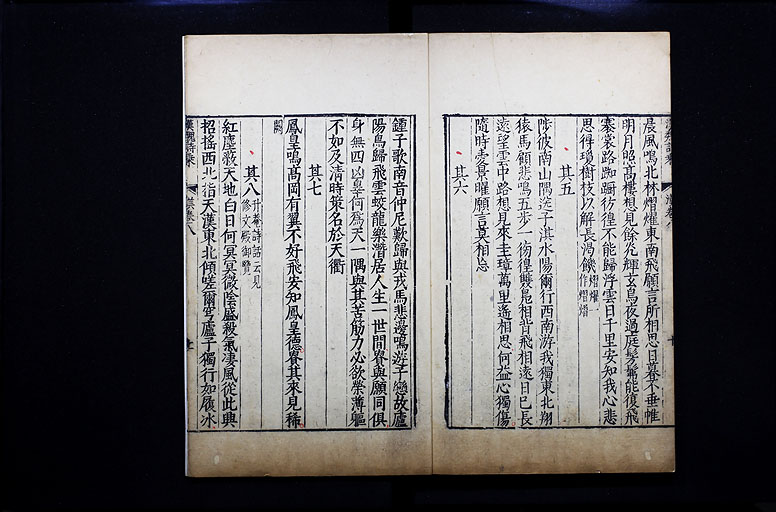 晨風鳴北林熠燿東南飛願言所相思日暮不垂帷
明月照高樓想見餘光輝玄鳥夜過庭髣髴能復飛
褰裳路踟蹰彷徨不能歸浮雲日千里安知我心悲
思得瓊樹枝以解長渴饑熠燿一作熠熠
其五
陟彼南山隅送子淇水陽爾行西南遊我獨東北翔
轅馬顧悲鳴五步一彷徨雙鳧相背飛相遠日已長
遠望雲中路想見來圭璋萬里遙相思何益心獨傷
隨時愛景曜願言莫相忘
其六
鍾子歌南音仲尼歎歸與戎馬悲邊鳴遊子戀故廬
陽鳥歸飛雲蛟龍樂潛居人生一世間貴與願同俱
身無四凶罪何為天一隅與其苦筋力必欲榮薄軀
不如及清時策名於天衢
其七
鳳皇鳴高岡有翼不好飛安知鳳皇德貴其來見稀
闕
其八升菴詩話云見修文殿御覽
紅塵蔽天地白日何冥冥微陰盛殺氣淒風從此興
招搖西北指天漢東北傾嗟爾穹廬子獨行如履冰